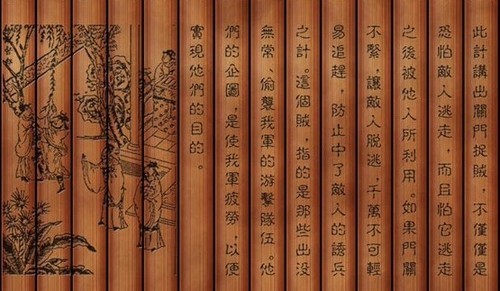 此計講出關門捉賊，不僅僅是
恐怕敵人逃走，而且怕它逃走
之後被他人所利用。如果門關
不緊，讓敵人脫逃，千萬不可輕
易追趕，防止中了敵人的誘兵
之計。這個賊，指的是那些出沒
無常、偷襲我軍的游擊隊伍。他
們的企圖，是使我軍疲勞，以便
實現他們的目的。